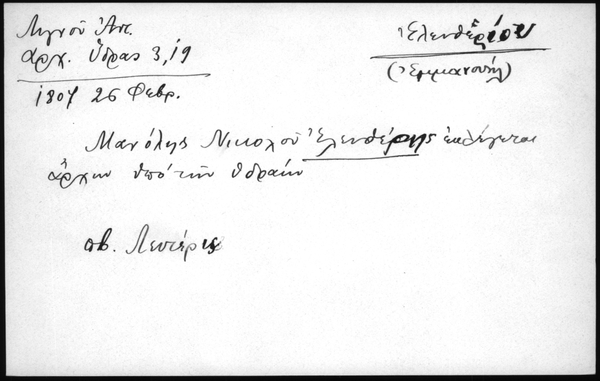 Λιγνοῦ Ἀντ.
ἀρχ. Ὕδρας 3, 19
Ἐλευθερίου
(Ἐμμανουήλ)
1807 26 Φεβρ.
Μανόλης Νικολοῦ Ἐλευθέρης ἐκλέγεται
ἄρχων ὑπὸ τῶν Ὑδραίων
πβ. Λευτέρης